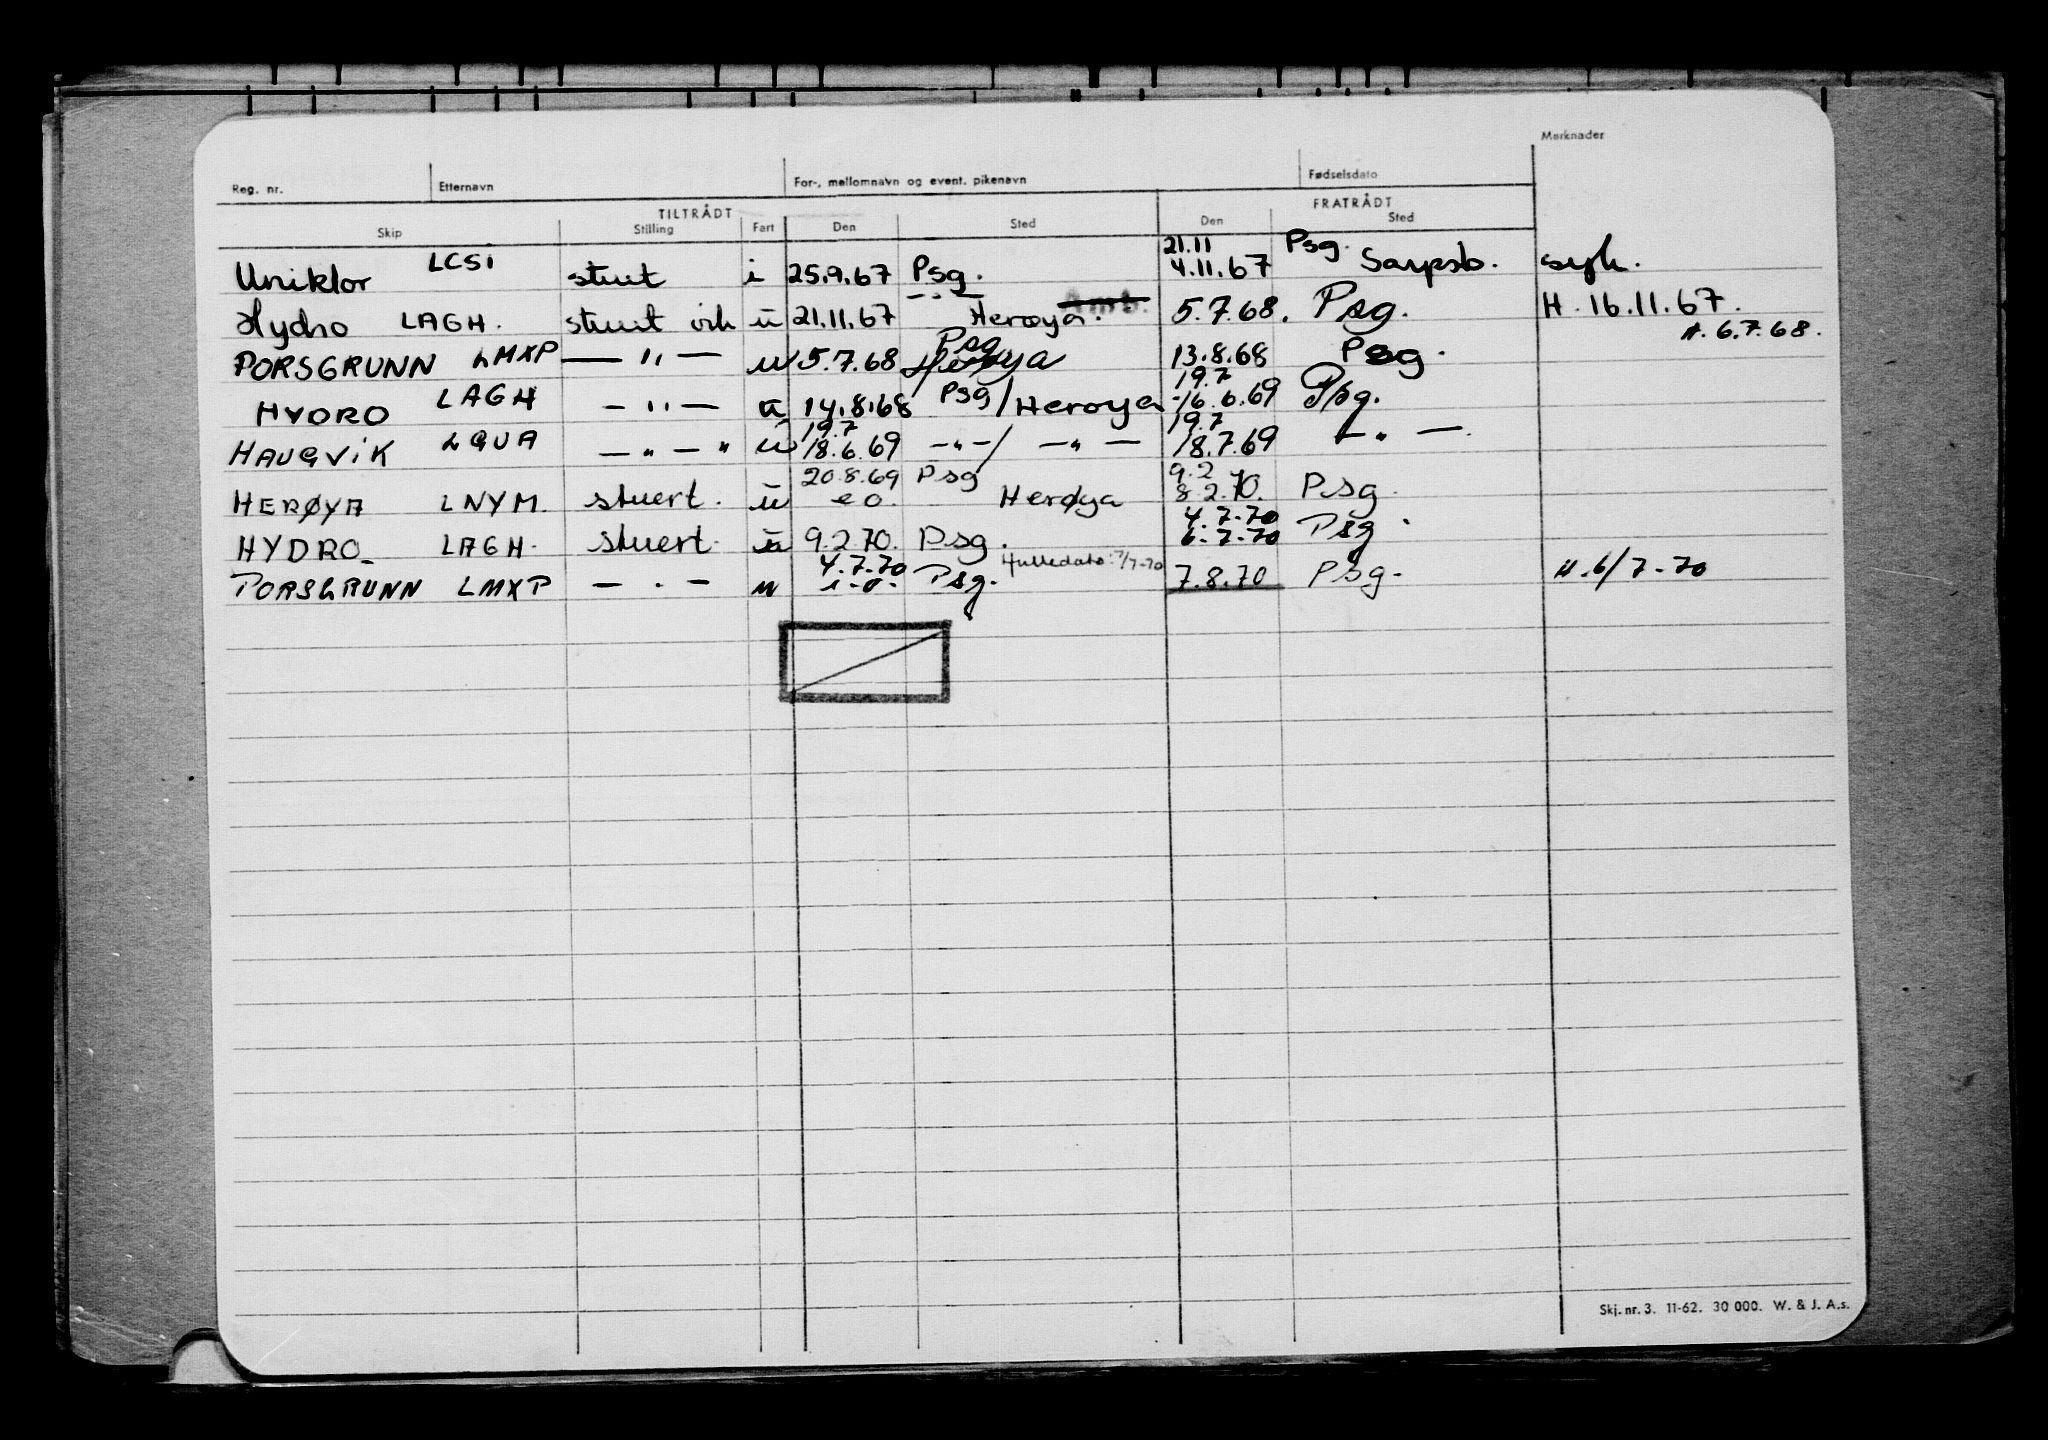 Merknader
Reg. nr. Etternavn For-, mellomnavn og event. pikenavn Fødselsdato
TILTRÅDT FRATRÅDT
Skip Stilling Fart Den Sted Den Sted
21.11 Psg.
Uniklor LCSI stuert i 25.9.67 Psg. 4.11.67 Sarpsb. syk.
Hydro LAGH. stuert vik u 21.11.67 — " — Herøya. 5.7.68. Psg. H. 16.11.67.
Psg H. 6.7.68.
PORSGRUNN LMXP — " — u 5.7.68 Herøya 13.8.68 Psg.
19.7
HYDRO LAGH — " — u 14.8.68 Psg/Herøya 16.6.69 Psg.
19.7 19.7
HAUGVIK LQUA — " — " u 18.6.69 — " — / — " — 18.7.69 — " —.
20.8.69 Psg 9.2
HERØYA LNYM. stuert. u e o. Herøya 8.2.70. Psg.
4.7.70
HYDRO LAGH. stuert. u 9.2.70. Psg. 6.7.70 Psg.
4.7.70 Hulledato: 7/7-70
PORSGRUNN LMXP — . — u i.o. Psg. 7.8.70 Psg. H. 6/7-70
Skj. nr. 3. 11-62. 30 000. W. & J. A.s.